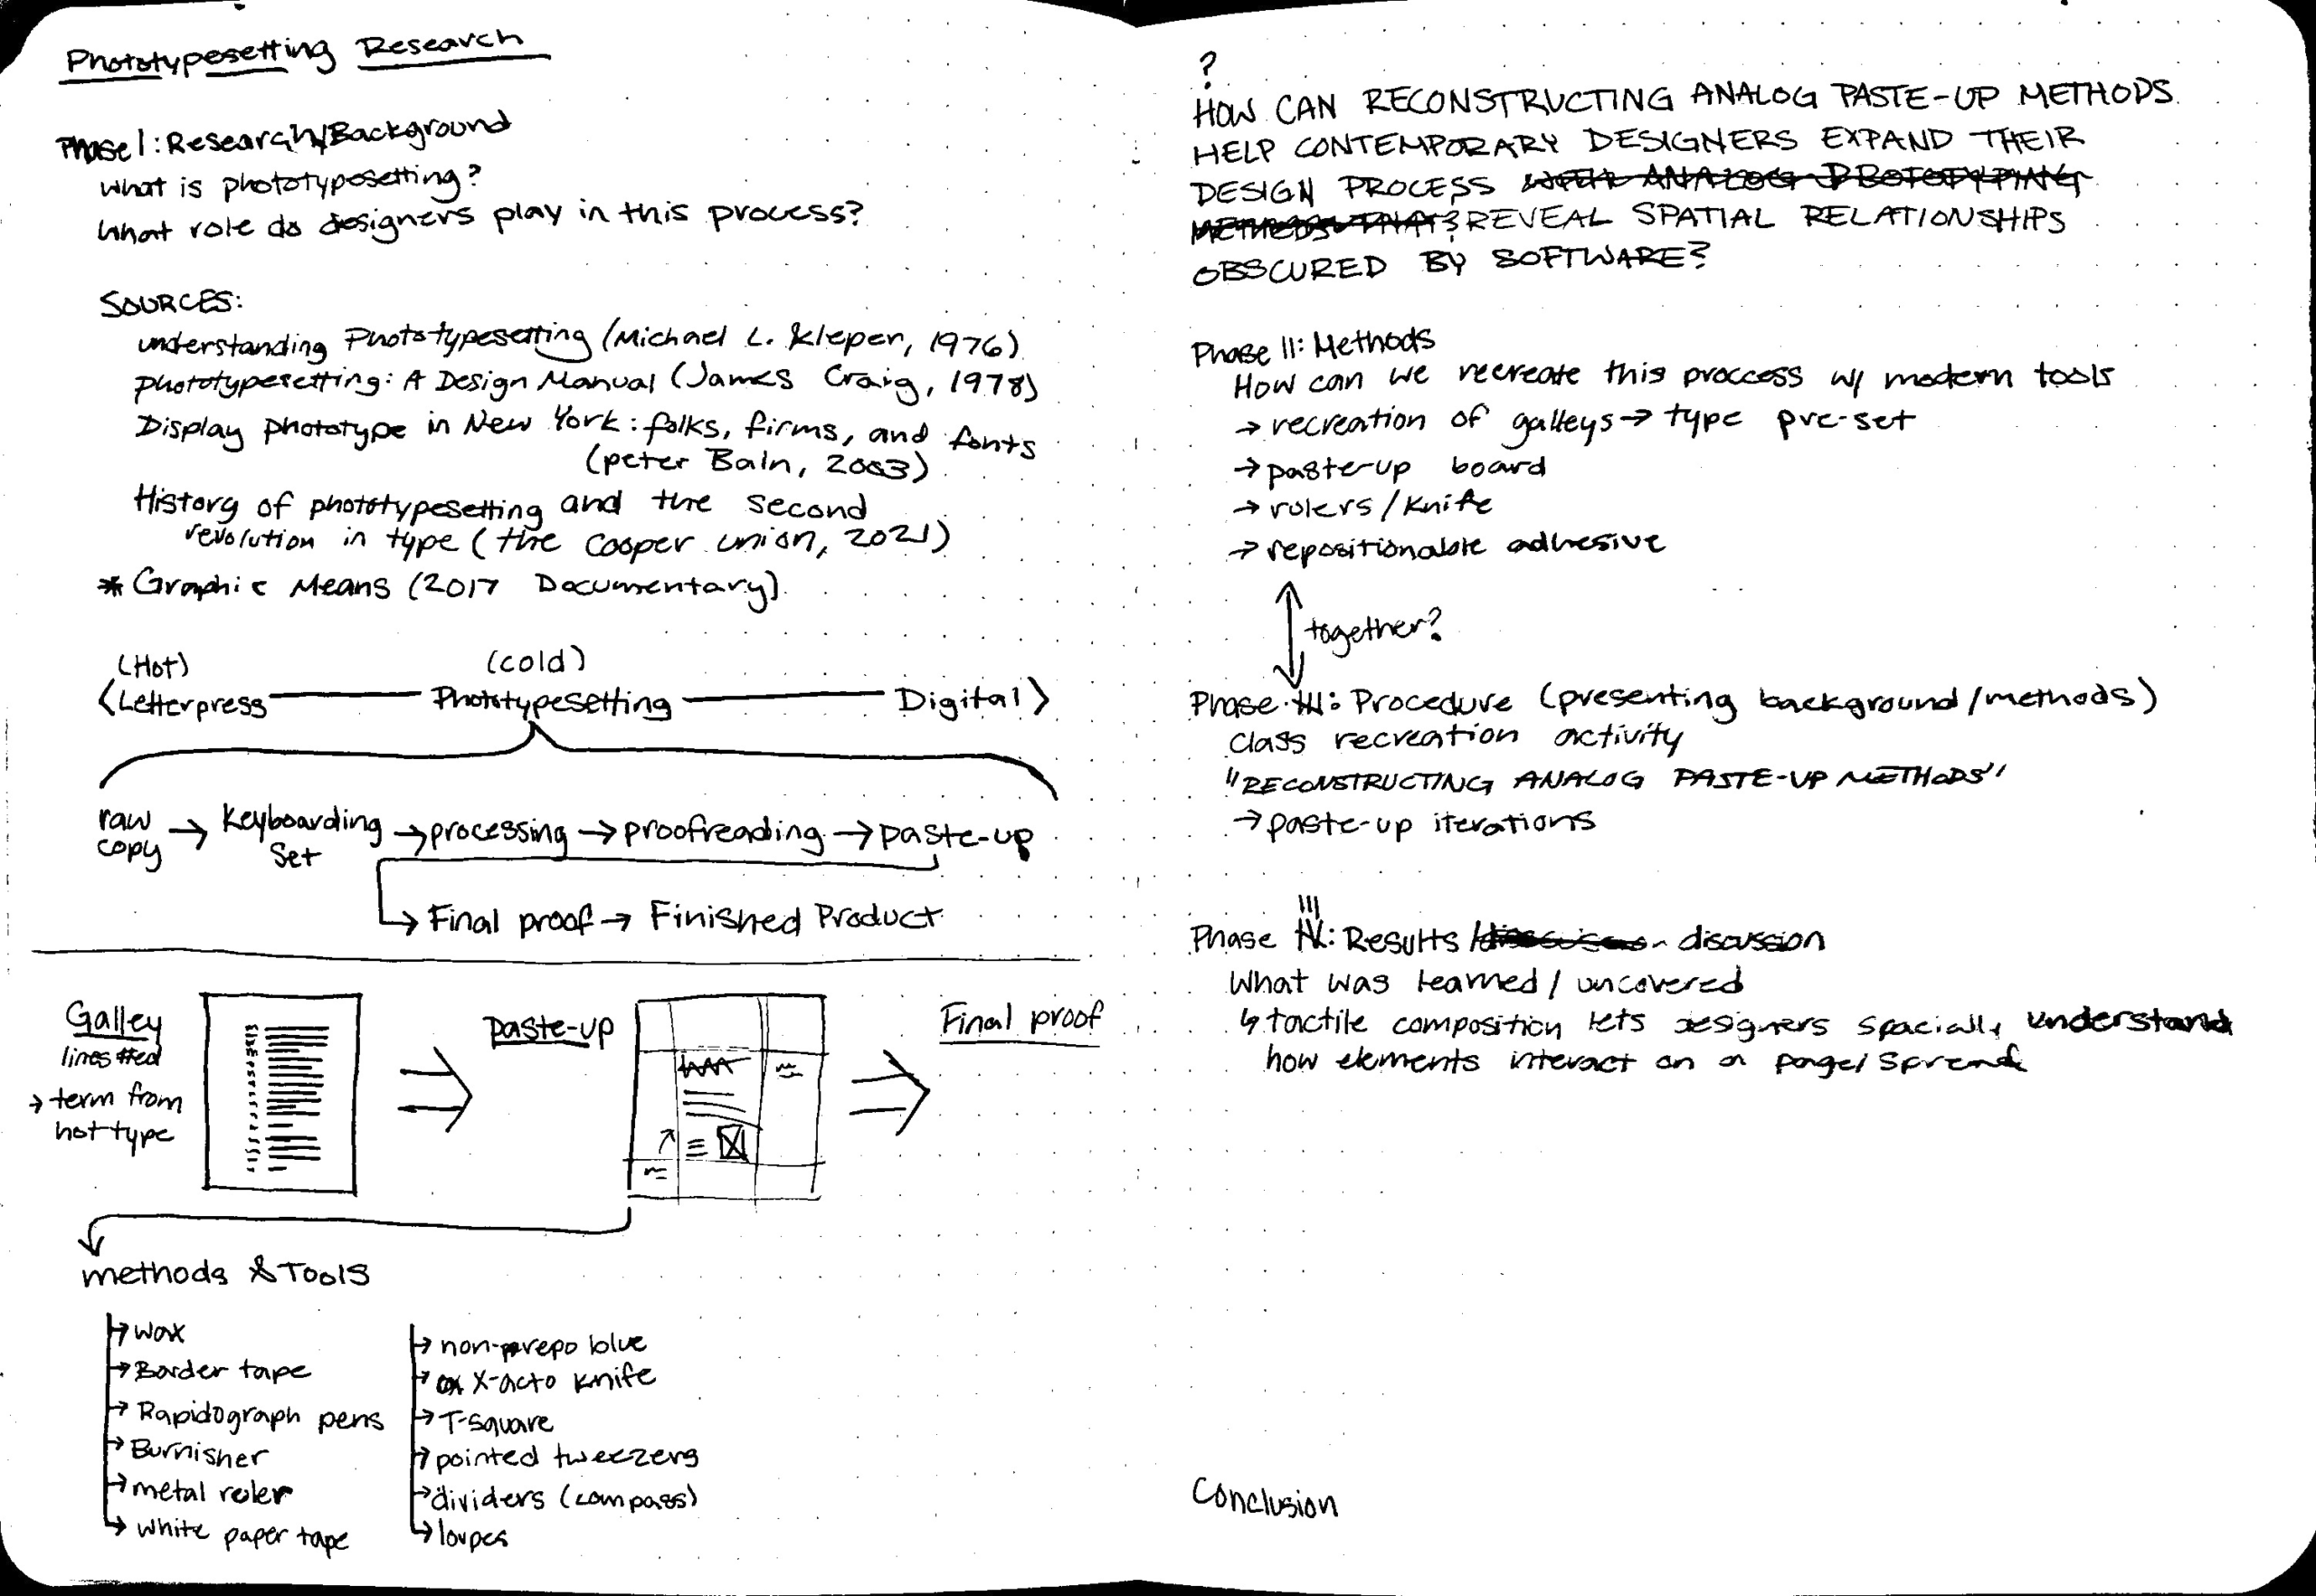 Phototypesetting Research
Phase 1: Research/Background
what is phototyposetting?
what role do designers play in this process?
SOURCES:
understanding Phototypesetting (Michael L. Kleper, 1976)
phototypesetting: A Design Manual (James Craig, 1978)
Display phototype in New York: folks, firms, and fonts
(peter Bain, 2003)
History of phototypesetting and the second
revolution in type (the cooper union, 2021)
* Graphic Means (2017 Documentary)
(Hot)
(cold)
Letterpress
Phototypesetting
Digital
raw
copy → Keyboarding
Set → processing → proofreading → paste-up
→ Final proof → Finished Product
Galley
lines
→ term from
hot type
paste-up
Final proof
methods & Tools
→ wax
→ Border tape
→ Rapidograph pens
→ Burnisher
→ metal ruler
→ white paper tape
→ non-repo blue
→ X-acto knife
→ T-square
→ pointed tweezers
→ dividers (compass)
→ loupes
?
HOW CAN RECONSTRUCTING ANALOG PASTE-UP METHODS
HELP CONTEMPORARY DESIGNERS EXPAND THEIR
DESIGN PROCESS WITH ANALOG PROTOTYPING
METHODS THAT? REVEAL SPATIAL RELATIONSHIPS
OBSCURED BY SOFTWARE?
Phase II: Methods
How can we recreate this proccess w/ modern tools
→ recreation of galleys → type pre-set
→ paste-up board
→ rulers/knife
→ repositionable adhesive
together?
Phase III: Procedure (presenting background/methods)
class recreation activity
"RECONSTRUCTING ANALOG PASTE-UP METHODS"
→ paste-up iterations
III
Phase IV: Results / discussion
What was learned / uncovered
↳ tactile composition lets designers spacially understand
how elements interact on a page/spread
Conclusion